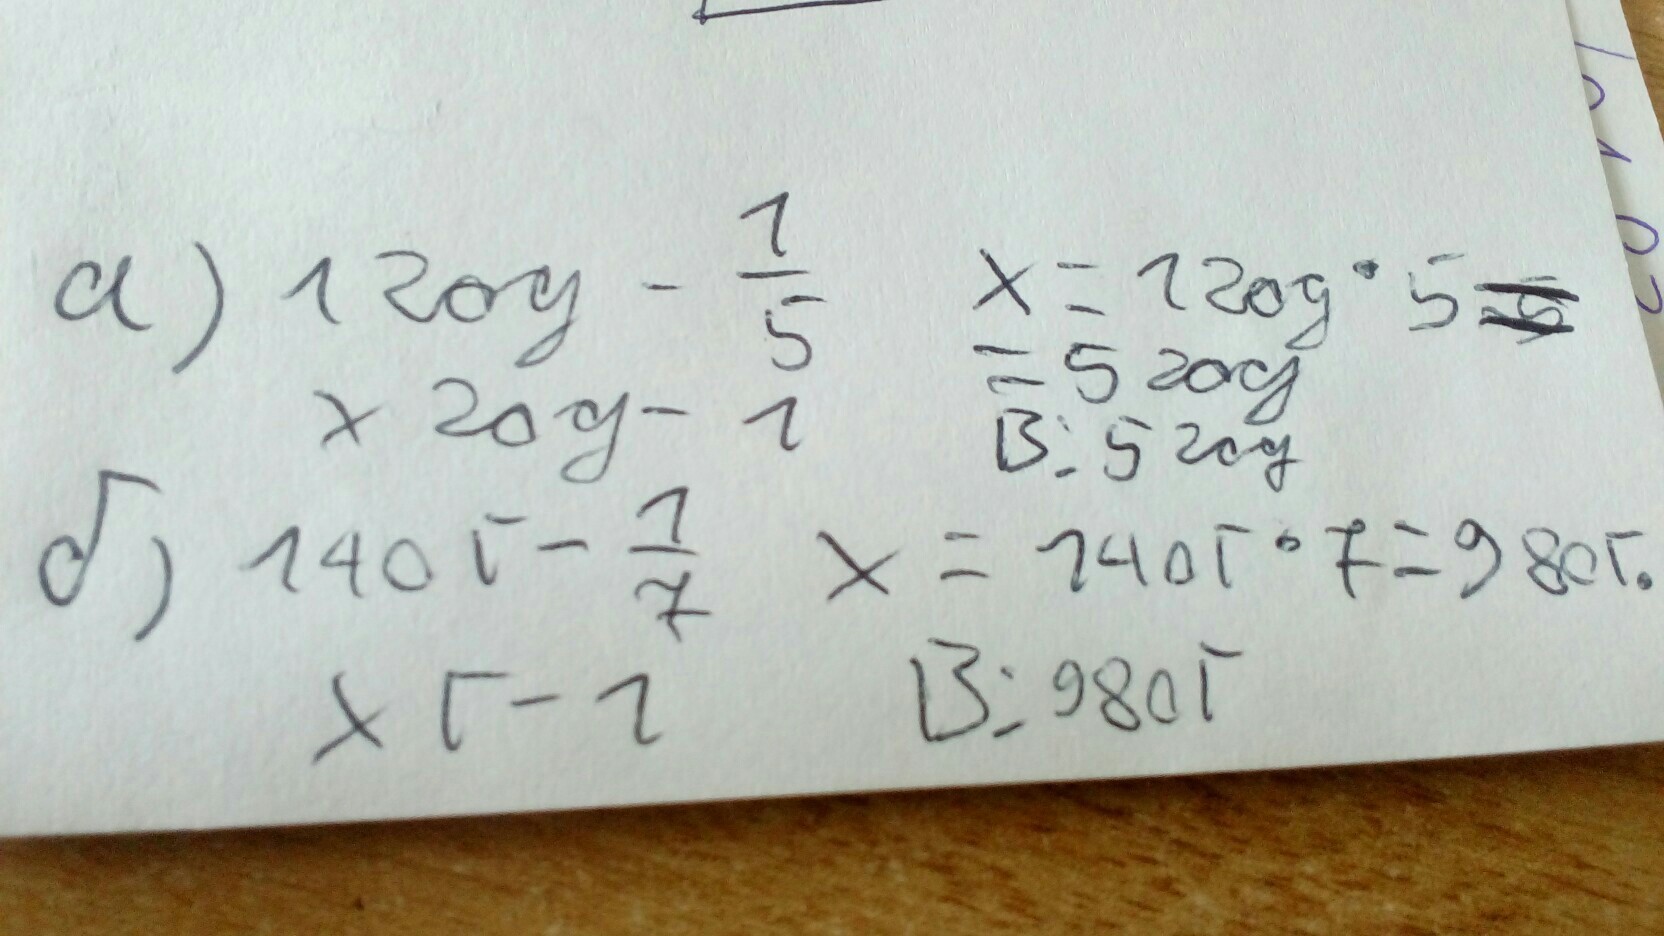 а) 1 год - 1/5 x = 1 год · 5
= 5 год
x год - 1 В: 5 год
б) 140 г - 1/7 x = 140 г · 7 = 980 г.
x г - 1 В: 980 г